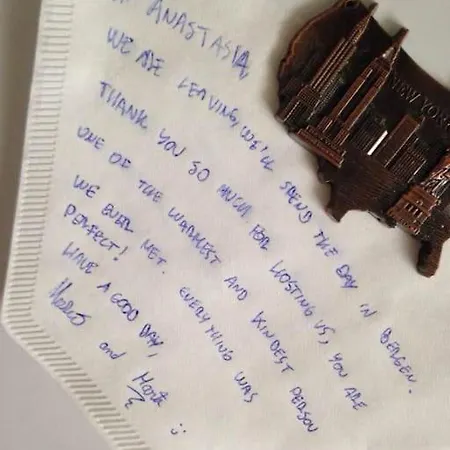 ANASTASIA,
WE ARE LEAVING, WE'LL SPEND THE DAY IN BERGEN.
THANK YOU SO MUCH FOR HOSTING US, YOU ARE
ONE OF THE WARMEST AND KINDEST PERSON
WE EVER MET. EVERYTHING WAS
PERFECT!
HAVE A GOOD DAY,
and :)
NEW YORK